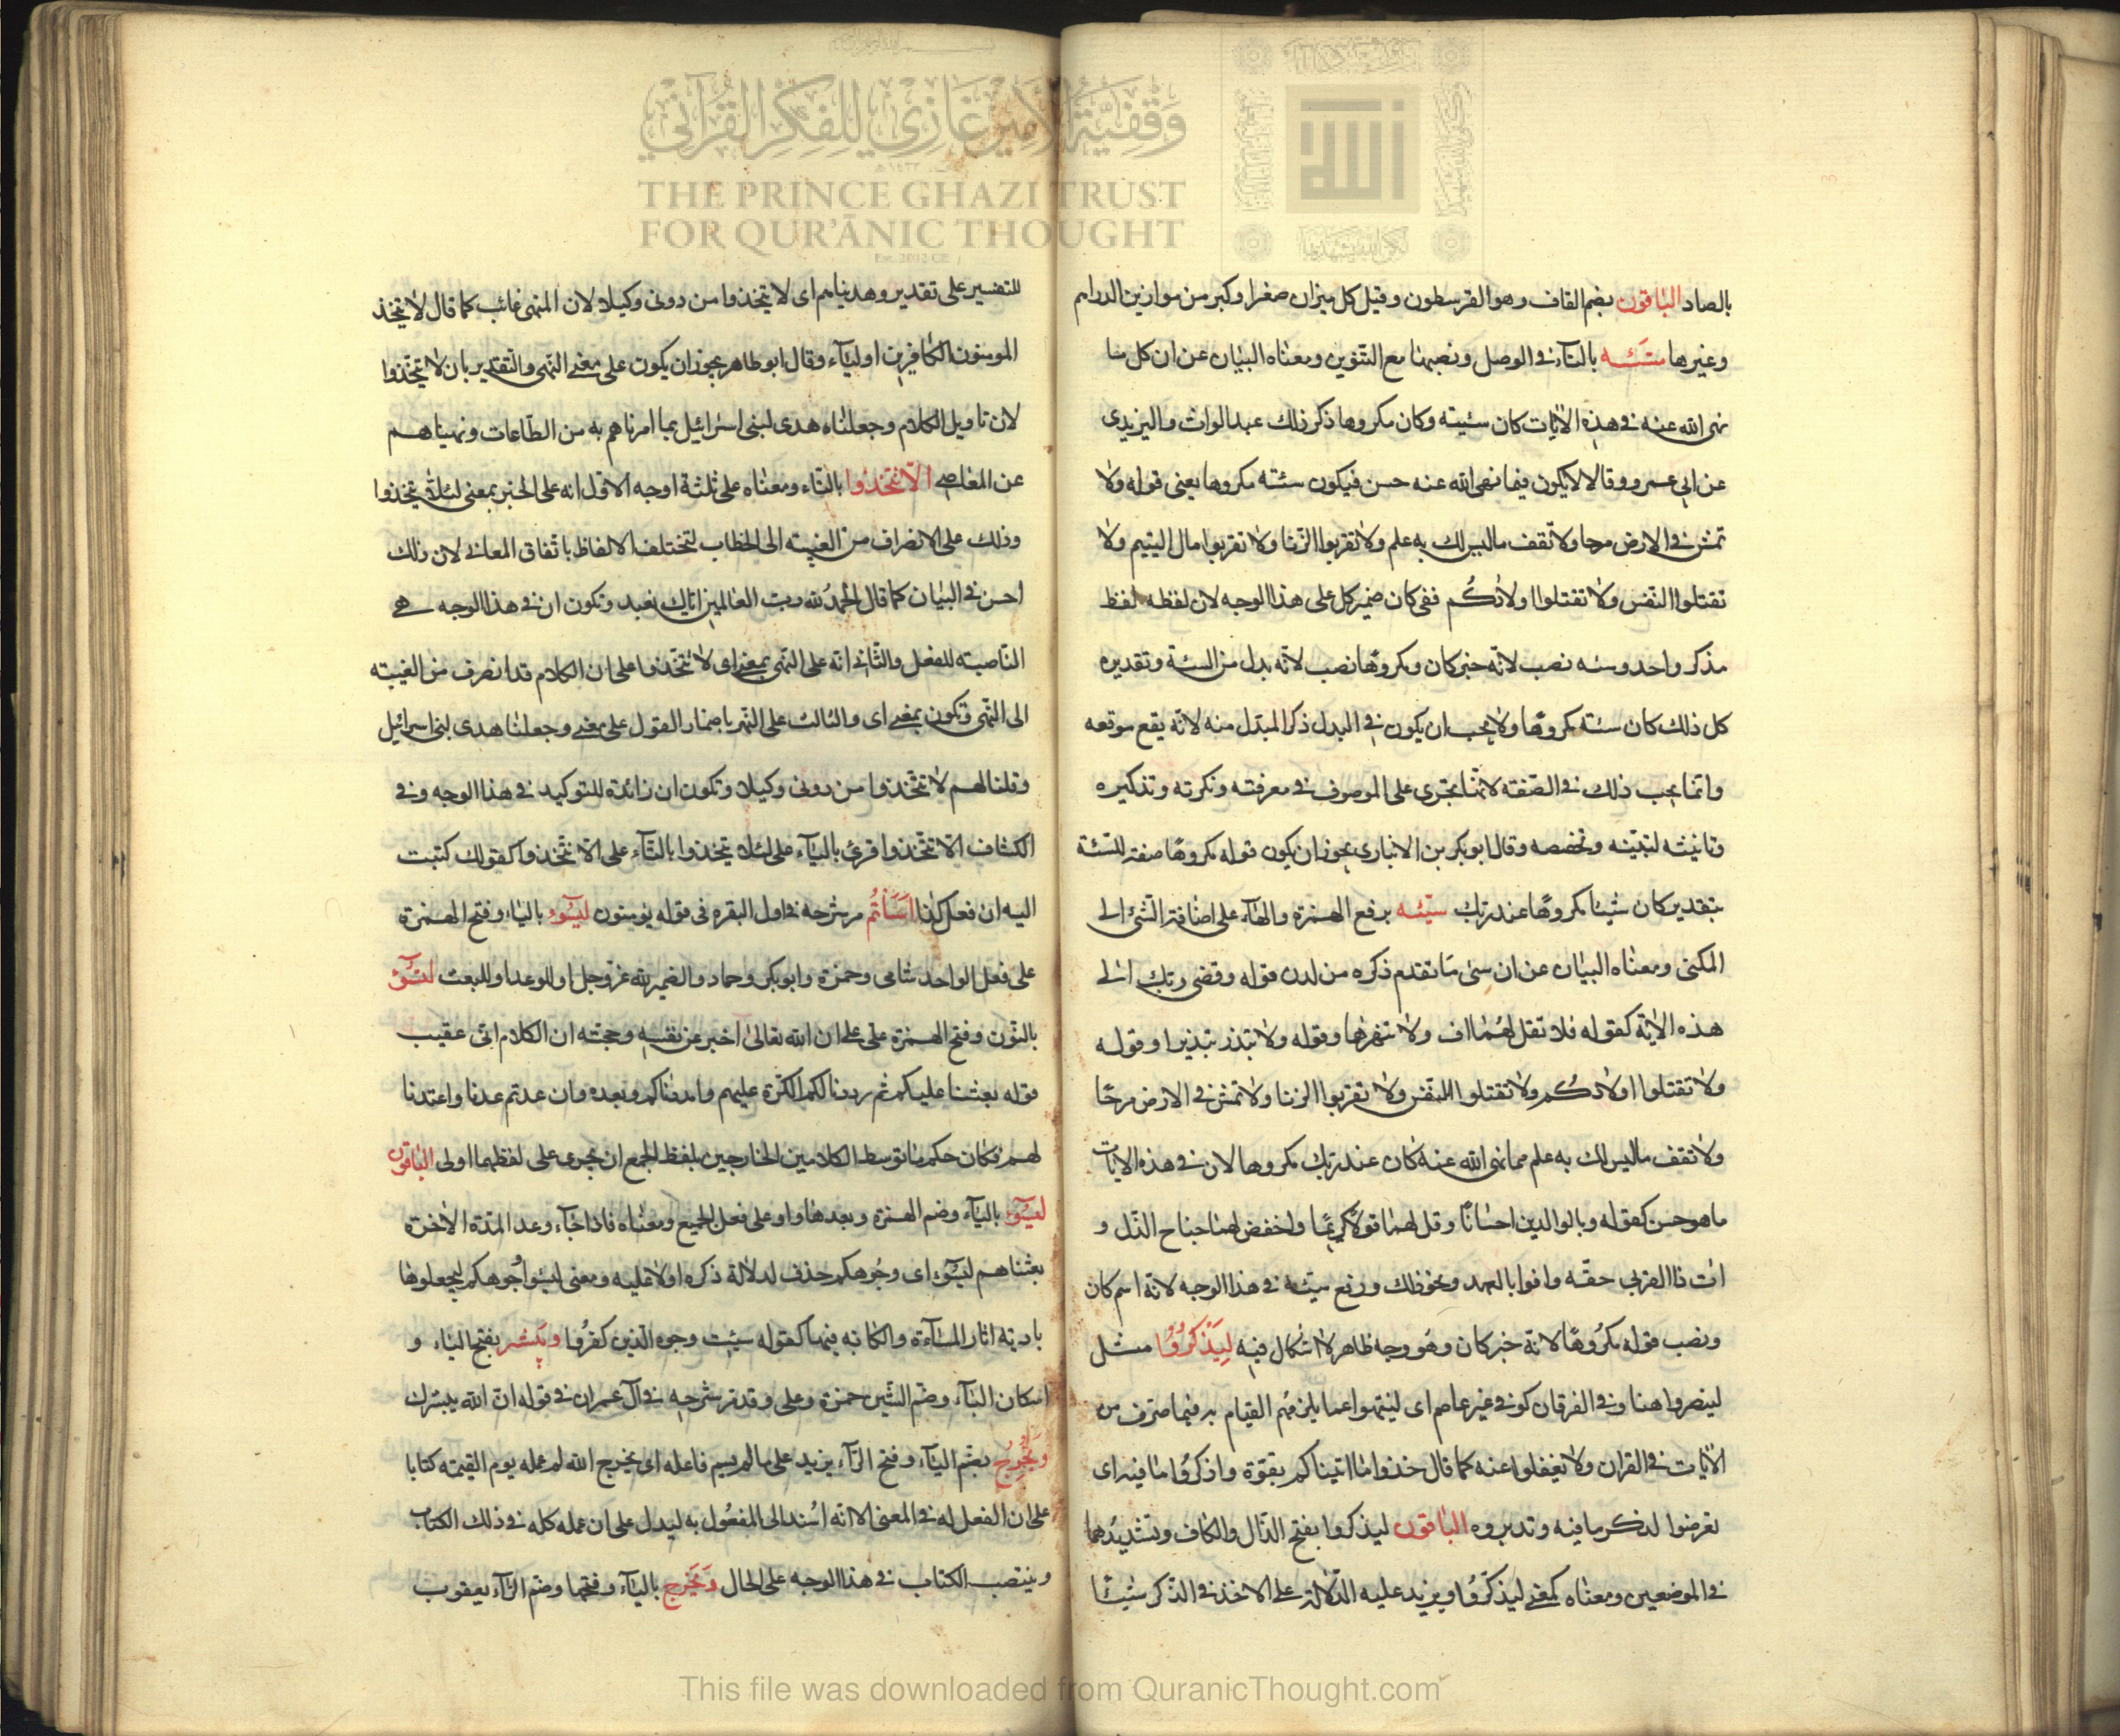 وقفية الأمير غازي للفكر القرآني
THE PRINCE GHAZI TRUST
FOR QUR'ĀNIC THOUGHT
بالصاد الباقون بضم القاف وهو القرسطون وقيل كل ميزان صغر او كبر من موازين الدراهم
وغيرها سيئه بالتآء فى الوصل ونصبهما مع التنوين ومعناه البيان عن ان كل ما
نهى الله عنه فى هذه الآيات كان سئيته وكان مكروها ذكر ذلك عبد الوارث واليزيدى
عن ابى عمرو وقالا لا يكون فيما نهى الله عنه حسن فيكون سئته مكروها يعنى قوله ولا
تمش فى الارض مرحا ولا تقف ماليس لك به علم ولا تقربوا الزنا ولا تقربوا مال اليتيم ولا
تقتلوا النفس ولا تقتلوا اولادكم ففى كان ضمير كل على هذا الوجه لان لفظه لفظ
مذكر واحد وسئه نصب لانه خبر كان ومكروها نصب لانه بدل من السئة وتقديره
كل ذلك كان سئته مكروها ولا يجب ان يكون فى البدل ذكر المبدل منه لانه يقع موقعه
وانما يجب ذلك فى الصفته لانها تجرى على الموصوف فى معرفته ونكرته وتذكيره
وتانيثه وقال ابو بكر بن الانبارى يجوز ان يكون قوله مكروها صفته للسئة
بتقدير كان شيئا مكروها عند ربك سيئه برفع الهمزة والهآء على اضافة الشئ الى
المكنى ومعناه البيان عن ان سئ ما تقدم ذكره من لدن قوله وقضى ربك الى
هذه الاية كقوله فلا تقل لهما اف ولا تنهرهما وقوله ولا تبذر تبذيرا وقوله
ولا تقتلوا اولادكم ولا تقتلوا النفس ولا تقربوا الزنا ولا تمش فى الارض مرحا
ولا تقف ماليس لك به علم مما نهى الله عنه كان عند ربك مكروها لان فى هذه الايات
ما هو حسن كقوله وبالوالدين احسانا وقل لهما قولا كريما واخفض لهما جناح الذل و
ات ذا القربى حقه واوفوا بالعهد ونحو ذلك ورفع سيئه فى هذا الوجه لانه اسم كان
ونصب قوله مكروها لانه خبر كان وهو وجه ظاهر لا اشكال فيه ليذكروا مثل
لينصروا هنا وفى الفرقان كوفى غير عاصم اى لينتهوا عما يلزمهم القيام به فيما صرف من
الايات فى القران ولا تغفلوا عنه كما قال خذوا ما اتيناكم بقوة واذكروا ما فيه اى
تعرضوا لذكر ما فيه وتدبروه الباقون ليذكروا بفتح الذال والكاف وتشديدهما
فى الموضعين ومعناه كمعنى ليذكروا ويزيد عليه الدلالة على الاخذ فى الذكر شيئا
للتفسير على تقدير وهديناهم اى لا يتخذوا من دونى وكيلا لان المنهى غائب كما قال لا يتخذ
المومنون الكافرين اوليآء وقال ابو طاهر يجوز ان يكون على معنى النهى والتقدير بان لا يتخذوا
لان تاويل الكلام وجعلناه هدى لبنى اسرائيل بما امرناهم به من الطاعات ونهيناهم
عن المعاصى الا تتخذوا بالتاء ومعناه على ثلثة اوجه الاول انه على الخبر بمعنى لئلا يتخذوا
وذلك على الانصراف من الغيبته الى الخطاب لتختلف الالفاظ باتفاق المعانى لان ذلك
احسن فى البيان كما قال الحمد لله رب العالمين اياك نعبد وتكون ان فى هذا الوجه هى
الناصبته للفعل والثانى انه على النهى بمعنى اى لا تتخذوا على ان الكلام قد انصرف من الغيبته
الى النهى وتكون بمعنى اى والثالث على النهى باضمار القول على معنى وجعلنا هدى لبنى اسرائيل
وقلنا لهم لا تتخذوا من دونى وكيلا وتكون ان زائدة للتوكيد فى هذا الوجه وفى
الكشاف الا تتخذوا قرئ باليآء على لئلا يتخذوا بالتآء على الا تتخذوا كقولك كتبت
اليه ان فعل كذا اسأتم مر شرحه فى اول البقره فى قوله يؤمنون ليسوء بالياء وفتح الهمزة
على فعل الواحد شامى وحمزة وابو بكر وحماد والضمير لله عز وجل او للوعد او للبعث لنسوء
بالنون وفتح الهمزة على على ان الله تعالى اخبر عن نفسه وحجته ان الكلام اتى عقيب
قوله بعثنا عليكم ثم رددنا لكم الكرة عليهم وامددناكم وبعده وان عدتم عدنا واعتدنا
لهم فكان حكم ما توسط الكلامين الخارجين بلفظ الجمع ان يجرى على لفظهما اولى الباقون
ليسوءا باليآء وضم الهمزة وبعدها واو على فعل الجميع ومعناه فاذا جآء وعد المدة الاخرة
بعثناهم ليسوء اى وجوهكم حذف لدلالة ذكره اولا عليه ومعنى ليسوا وجوهكم ليجعلوها
بادية اثار المسآءة والكابه فيها كقوله سيئت وجوه الذين كفروا ويبشر بفتح الياء و
اسكان البآء وضم الشين حمزة وعلى وقد مر شرحه فى آل عمران فى قوله ان الله يبشرك
ويخرج بضم اليآء وفتح الرآء يزيد على ما لم يسم فاعله اى يخرج الله له عمله يوم القيمته كتابا
على ان الفعل له فى المعنى الا انه اسند الى المفعول به ليدل على ان عمله كله فى ذلك الكتاب
وينتصب الكتاب فى هذا الوجه على الحال ويخرج باليآء وفتحها وضم الرآء يعقوب
This file was downloaded from QuranicThought.com